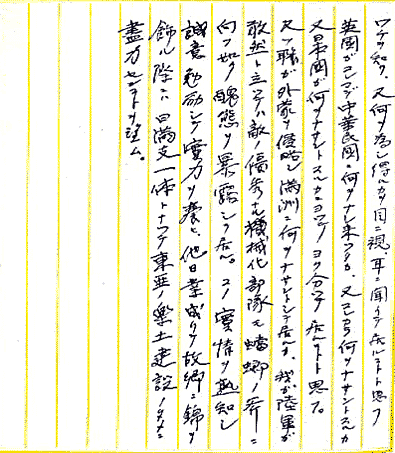 知ク、又何ヲ為シ得ルカヲ目ニ視、耳ニ聞イテ居ルコトト思フ
英國ガ マデ中華民國ニ何ヲナシ来ツタカ、又 何ヲナサントスルカ
又 國ガ何ヲナサントスルカ ヨク分ツテ居ルコトト思フ。
又ソ聯ガ外蒙ヲ侵略シ満洲ニ何ヲナサントシテ居ルカ、我ガ陸軍ガ
敢然ト立テバ敵ノ優秀ナル機械化部隊モ蟷螂ノ斧ニ
向フ如ク醜態ヲ暴露シ 居ル。コノ實情ヲ熟知シ
誠意勉励シテ實力ヲ養ヒ、他日業成リテ故郷ニ錦ヲ
飾ル際ニハ日満支一体トナツテ東亜ノ楽土建設ノタメニ
盡力センコトヲ望ム。